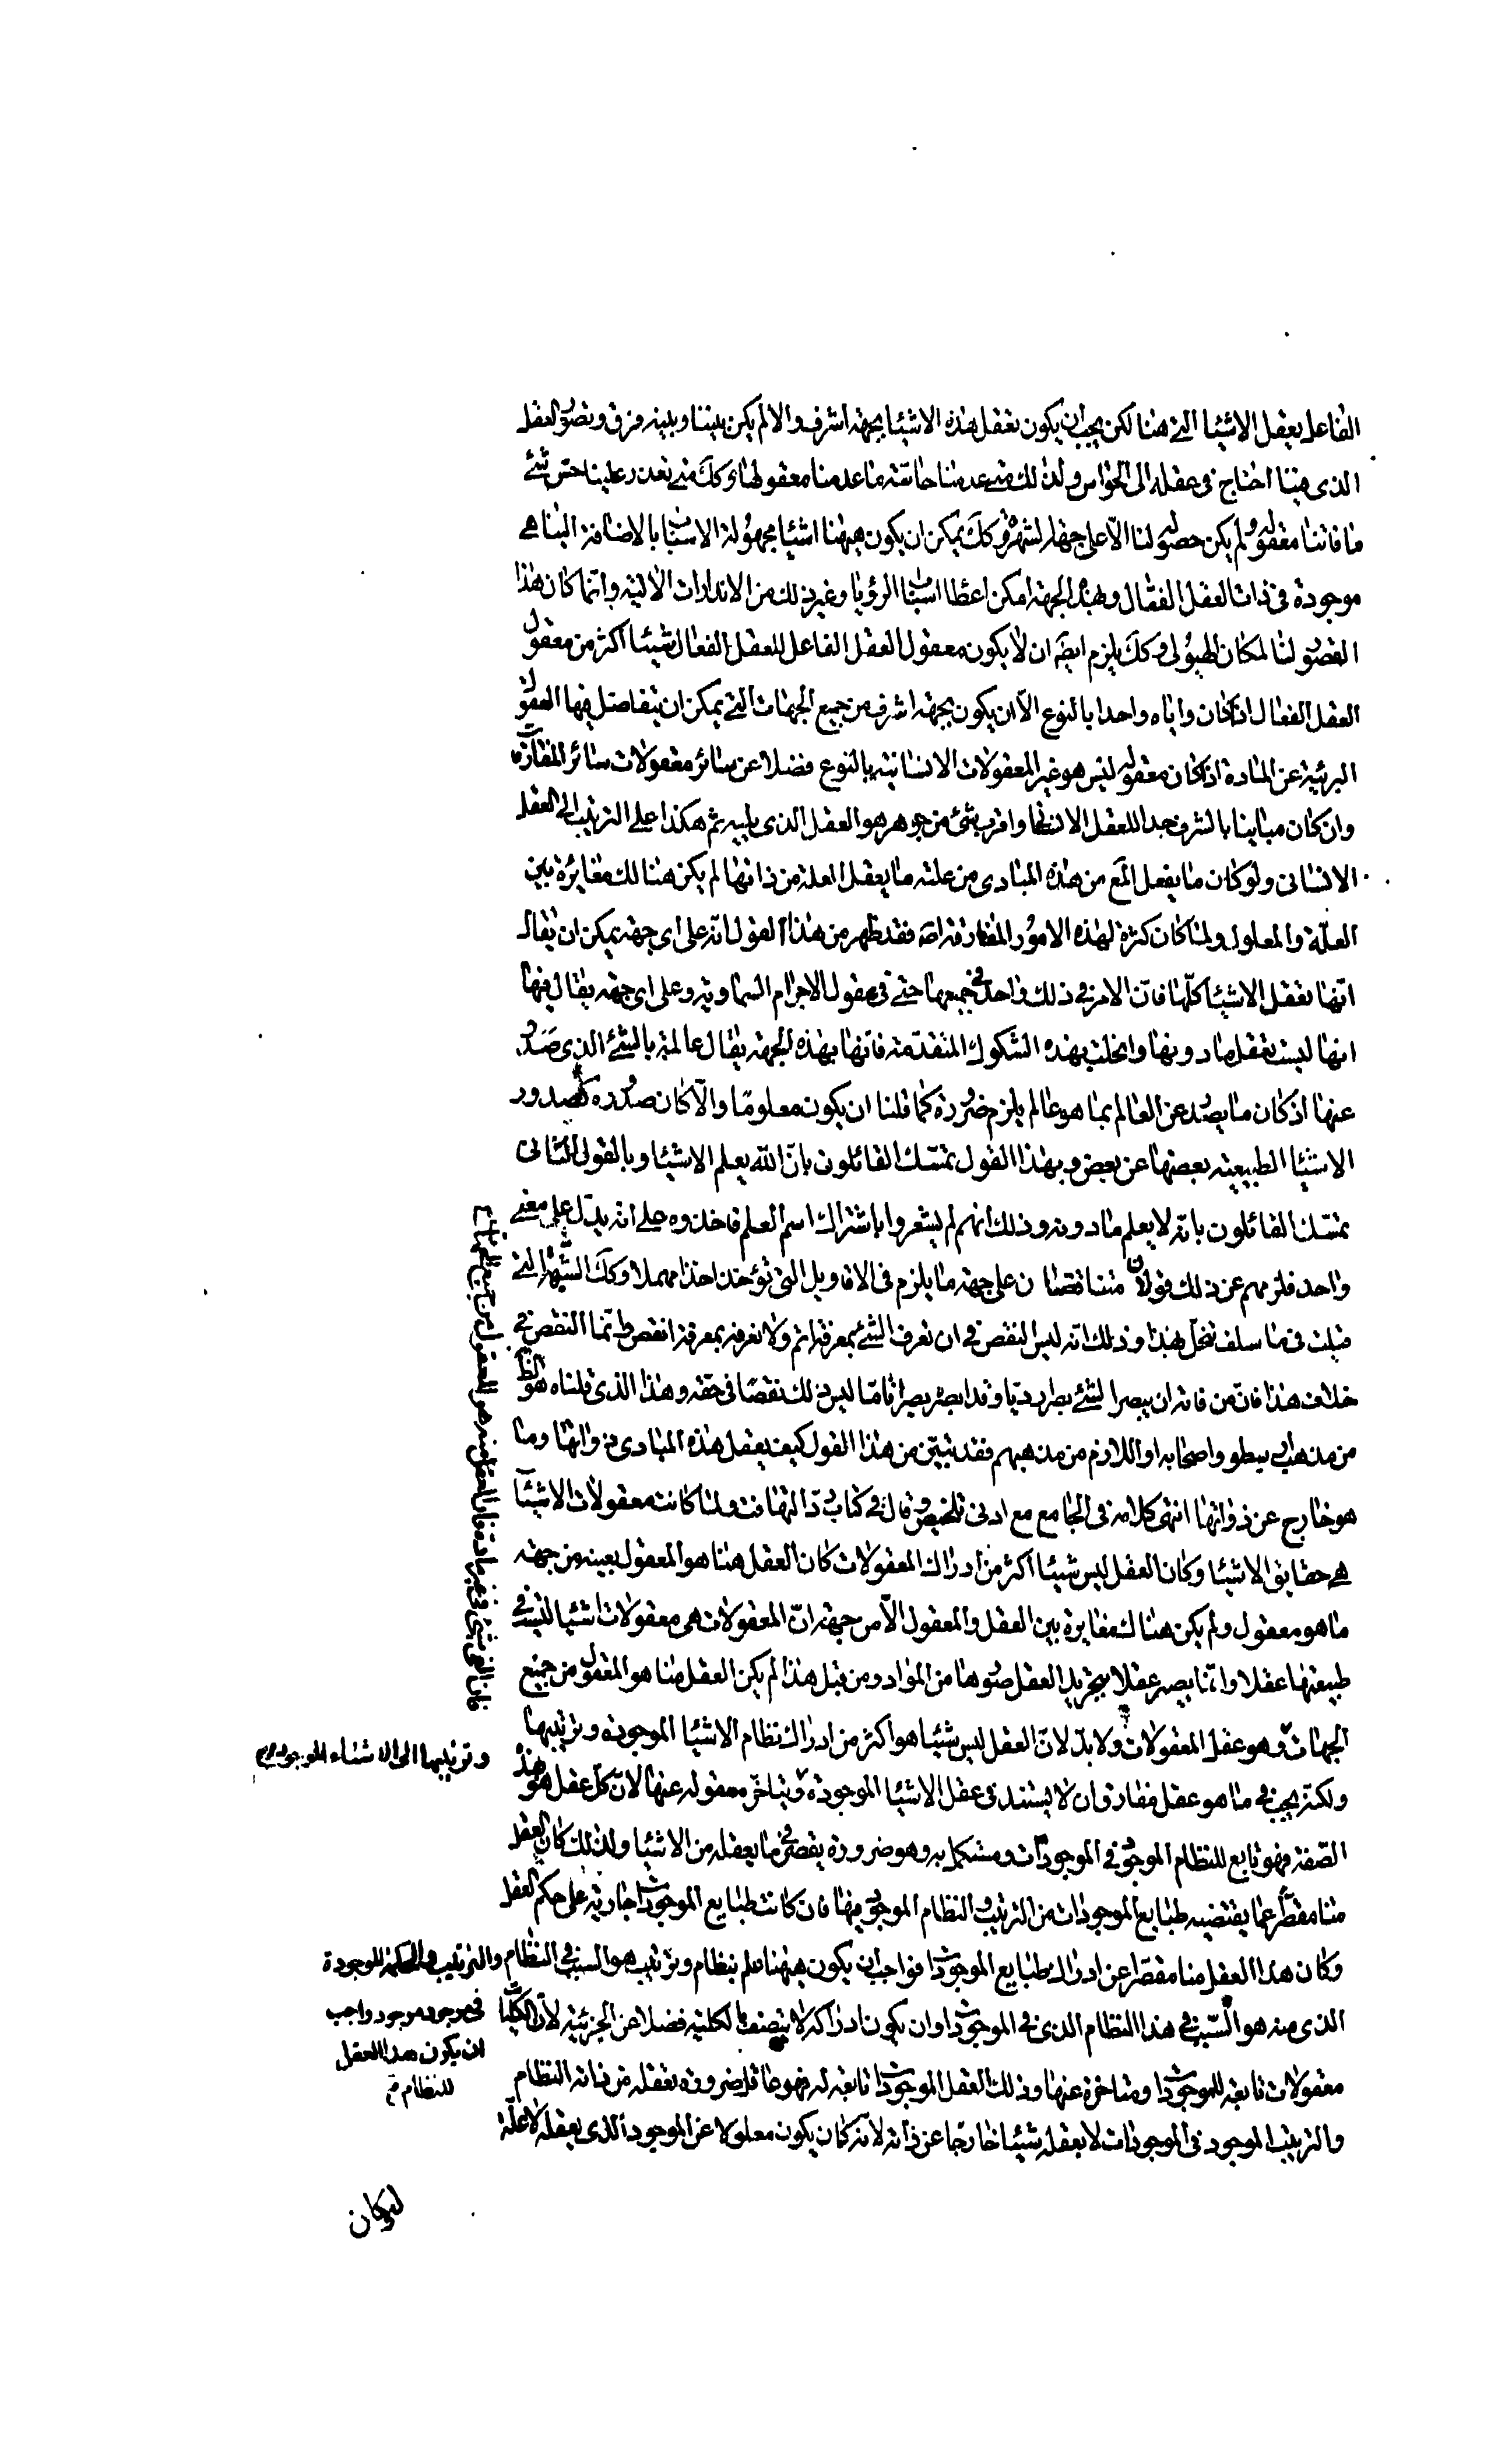 الفاعل يعقل الاشيا التى هنا لكن يجب ان يكون تعقل هذه الاشيا بجهة اشرف والا لم يكن بيننا وبينه فرق وتصور العقل
الذى هيهنا احتاج فى عقله الى الحواس ولذلك متى عدمنا حاسة ما عدمنا معقولها وكك متى تعذر علينا حس شئ
ما فاتنا معقوله ولم يكن حصوله لنا الا على جهة الشهرة وكك يمكن ان يكون هيهنا اشيا مجهولة الاسباب بالاضافة الينا هى
موجودة فى ذات العقل الفعال وبهذه الجهة امكن اعطا اسباب الرؤيا وغير ذلك من الانذارات الالهية وانما كان هذا
القصور لنا لمكان الهيولى وكك يلزم ايضا ان لا يكون معقول العقل الفاعل للعقل الفعال شيئا اكثر من معقول
العقل الفعال اذ كان واياه واحدا بالنوع الا ان يكون بجهة اشرف من جميع الجهات التى يمكن ان يتفاضل فيها العقول
البرئية عن المادة اذ كان معقوله ليس هو غير المعقولات الانسانية بالنوع فضلا عن سائر معقولات سائر المفارقة
وان كان مباينا بالشرف جدا للعقل الانسانى واقرب شئ من جوهره هو العقل الذى يليه ثم هكذا على الترتيب الى العقل
الانسانى ولو كان ما يعقل المع من هذه المبادى من علته ما يعقل العلة من ذاتها لم يكن هنالك مغايرة بين
العلة والمعلول ولما كان كثرة لهذه الامور المفارقة اصلا فقد ظهر من هذا القول انه على اى جهة يمكن ان يقال
انها تعقل الاشيا كلها فان الامر فى ذلك واحد فى جميعها حتى فى عقول الاجرام السماوية وعلى اى جهة يقال فيها
انها ليست تعقل ما دونها وانحلت بهذه الشكوك المتقدمة فانها بهذه الجهة يقال عالمة بالشئ الذى صدر
عنها اذ كان ما يصدر عن العالم بما هو عالم يلزم ضرورة كما قلنا ان يكون معلوما والا كان صدوره كصدور
الاشيا الطبيعية بعضها عن بعض وبهذا القول تمسك القائلون بان الله يعلم الاشيا وبالقول الثانى
تمسك القائلون بانه لا يعلم ما دونه وذلك انهم لم يشعروا باشتراك اسم العلم فاخذوه على انه يدل على معنى
واحد فلزمهم عن ذلك قولان متناقضان على جهة ما يلزم فى الاقاويل التى تؤخذ اخذا مهملا وكك الشبهة التى
قيلت فى ما سلف تنحل بهذا وذلك انه ليس النقص فى ان نعرف الشئ بمعرفة اتم ولا نعرفه بمعرفة انقص وانما النقص فى
خلاف هذا فان من فاته ان يبصر الشئ بصرا رديا وقد ابصره بصرا تاما ليس ذلك نقصا فى حقه وهذا الذى قلناه هو الظ
من مذهب ارسطو واصحابه او اللازم من مذهبهم فقد تبين من هذا القول كيف يعقل هذه المبادى ذواتها وما
هو خارج عن ذواتها انتهى كلامه فى الجامع مع ادنى تلخيص وقال فى كتاب رد التهافت ولما كانت معقولات الاشيا
هى حقايق الاشيا وكان العقل ليس شيئا اكثر من ادراك المعقولات كان العقل هنا هو المعقول بعينه من جهة
ما هو معقول ولم يكن هنالك مغايرة بين العقل والمعقول الا من جهة ان المعقولات هى معقولات اشيا ليست فى
طبيعتها عقلا وانما يصير عقلا بتجريد العقل صورها من المواد ومن قبل هذا لم يكن العقل منا هو المعقول من جميع
فان الفى شئ فى غير مادة فان العقل منه هو المعقول من جميع الجهات
الجهات وهو عقل المعقولات ولا بد لان العقل ليس شيئا هو اكثر من ادراك نظام الاشيا الموجودة وترتيبها
ولكنه يجب فى ما هو عقل مفارق ان لا يستند فى عقل الاشيا الموجودة ويتاخر معقوله عنها لان كل عقل هو هذ
وترتيبها الى الاشياء الموجودة
الصفة فهو تابع للنظام الموجود فى الموجودات ومستكمل به وهو ضرورة يقصر فى ما يعقله من الاشيا ولذلك كان العقل
منا مقصرا عما يقتضيه طبايع الموجودات من الترتيب والنظام الموجود فيها فان كانت طبايع الموجودات جارية على حكم العقل
وكان هذا العقل منا مقصرا عن ادراك طبايع الموجودات فواجب ان يكون هيهنا علم بنظام وترتيب هو السبب فى النظام والترتيب والحكمة الموجودة
فى موجود موجود واجب
ان يكون هذا العقل
للنظام
الذى منه هو السبب فى هذا النظام الذى فى الموجودات وان يكون ادراكه لا يتصف بالكلية فضلا عن الجزئية لان الكليات
معقولات تابعة للموجودات ومتاخرة عنها وذلك العقل الموجودات تابعة له فهو عاقل ضرورة بعقله من ذاته النظام
والترتيب الموجود فى الموجودات لا بعقله شيئا خارجا عن ذاته لانه كان يكون معلولا عن الموجود الذى يعقله لا علة
لوكان